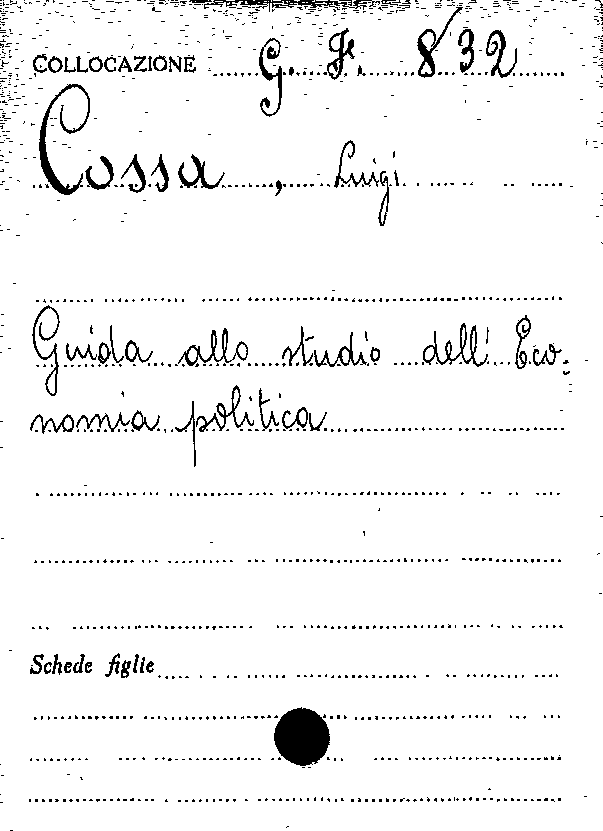 COLLOCAZIONE G. F. 832
Cossa, Luigi
Guida allo studio dell' Eco-
nomia politica
Schede figlie